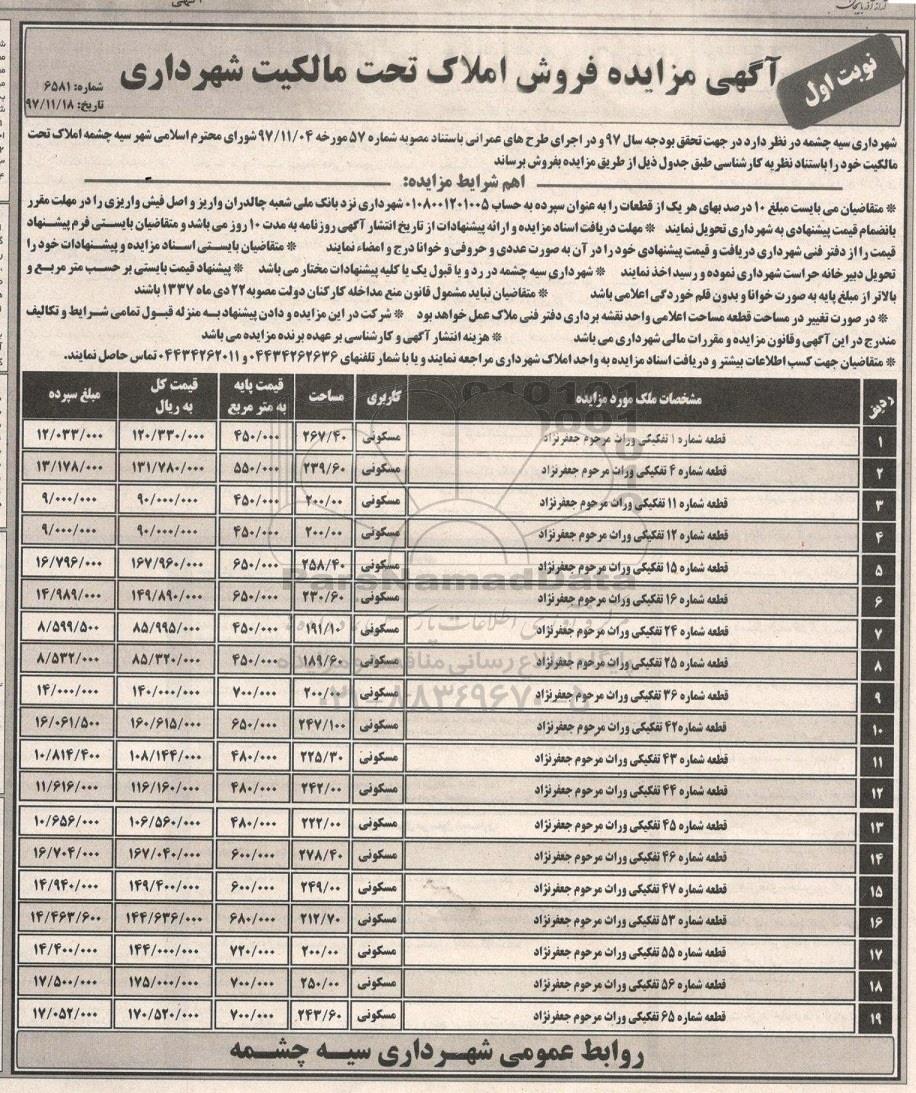 نوبت اول
آگهی مزایده فروش املاک تحت مالکیت شهرداری
شماره: ۶۵۸۱
تاریخ: ۹۷/۱۱/۱۸
شهرداری سیه چشمه در نظر دارد در جهت تحقق بودجه سال ۹۷ و در اجرای طرح های عمرانی باستناد مصوبه شماره ۵۷ مورخه ۹۷/۱۱/۰۴ شورای محترم اسلامی شهر سیه چشمه املاک تحت
مالکیت خود را باستناد نظریه کارشناسی طبق جدول ذیل از طریق مزایده بفروش برساند
اهم شرایط مزایده:
* متقاضیان می بایست مبلغ ۱۰ درصد بهای هر یک از قطعات را به عنوان سپرده به حساب ۰۱۰۸۰۰۱۲۰۱۰۰۵ شهرداری نزد بانک ملی شعبه چالدران واریز و اصل فیش واریزی را در مهلت مقرر
بانضمام قیمت پیشنهادی به شهرداری تحویل نمایند * مهلت دریافت اسناد مزایده و ارائه پیشنهادات از تاریخ انتشار آگهی روزنامه به مدت ۱۰ روز می باشد و متقاضیان بایستی فرم پیشنهاد
قیمت را از دفتر فنی شهرداری دریافت و قیمت پیشنهادی خود را در آن به صورت عددی و حروفی و خوانا درج و امضاء نمایند * متقاضیان بایستی اسناد مزایده و پیشنهادات خود را
تحویل دبیرخانه حراست شهرداری نموده و رسید اخذ نمایند * شهرداری سیه چشمه در رد و یا قبول یک یا کلیه پیشنهادات مختار می باشد * پیشنهاد قیمت بایستی بر حسب متر مربع و
بالاتر از مبلغ پایه به صورت خوانا و بدون قلم خوردگی اعلامی باشد * متقاضیان نباید مشمول قانون منع مداخله کارکنان دولت مصوبه ۲۲ دی ماه ۱۳۳۷ باشند
* در صورت تغییر در مساحت قطعه مساحت اعلامی واحد نقشه برداری دفتر فنی ملاک عمل خواهد بود * شرکت در این مزایده و دادن پیشنهاد به منزله قبول تمامی شرایط و تکالیف
مندرج در این آگهی و قانون مزایده و مقررات مالی شهرداری می باشد * هزینه انتشار آگهی و کارشناسی بر عهده برنده مزایده می باشد
* متقاضیان جهت کسب اطلاعات بیشتر و دریافت اسناد مزایده به واحد املاک شهرداری مراجعه نمایند و یا با شمار تلفنهای ۰۴۴۳۴۲۶۲۶۳۶ و ۰۴۴۳۴۲۶۲۰۱۱ تماس حاصل نمایند.
ردیف مشخصات ملک مورد مزایده کاربری مساحت قیمت پایه به متر مربع قیمت کل به ریال مبلغ سپرده
۱ قطعه شماره ۱ تفکیکی وراث مرحوم جعفرنژاد مسکونی ۲۶۷/۴۰ ۴۵۰/۰۰۰ ۱۲۰/۳۳۰/۰۰۰ ۱۲/۰۳۳/۰۰۰
۲ قطعه شماره ۴ تفکیکی وراث مرحوم جعفرنژاد مسکونی ۲۳۹/۶۰ ۵۵۰/۰۰۰ ۱۳۱/۷۸۰/۰۰۰ ۱۳/۱۷۸/۰۰۰
۳ قطعه شماره ۱۱ تفکیکی وراث مرحوم جعفرنژاد مسکونی ۲۰۰/۰۰ ۴۵۰/۰۰۰ ۹۰/۰۰۰/۰۰۰ ۹/۰۰۰/۰۰۰
۴ قطعه شماره ۱۲ تفکیکی وراث مرحوم جعفرنژاد مسکونی ۲۰۰/۰۰ ۴۵۰/۰۰۰ ۹۰/۰۰۰/۰۰۰ ۹/۰۰۰/۰۰۰
۵ قطعه شماره ۱۵ تفکیکی وراث مرحوم جعفرنژاد مسکونی ۲۵۸/۴۰ ۶۵۰/۰۰۰ ۱۶۷/۹۶۰/۰۰۰ ۱۶/۷۹۶/۰۰۰
۶ قطعه شماره ۱۶ تفکیکی وراث مرحوم جعفرنژاد مسکونی ۲۳۰/۶۰ ۶۵۰/۰۰۰ ۱۴۹/۸۹۰/۰۰۰ ۱۴/۹۸۹/۰۰۰
۷ قطعه شماره ۲۴ تفکیکی وراث مرحوم جعفرنژاد مسکونی ۱۹۱/۱۰ ۴۵۰/۰۰۰ ۸۵/۹۹۵/۰۰۰ ۸/۵۹۹/۵۰۰
۸ قطعه شماره ۲۵ تفکیکی وراث مرحوم جعفرنژاد مسکونی ۱۸۹/۶۰ ۴۵۰/۰۰۰ ۸۵/۳۲۰/۰۰۰ ۸/۵۳۲/۰۰۰
۹ قطعه شماره ۳۶ تفکیکی وراث مرحوم جعفرنژاد مسکونی ۲۰۰/۰۰ ۷۰۰/۰۰۰ ۱۴۰/۰۰۰/۰۰۰ ۱۴/۰۰۰/۰۰۰
۱۰ قطعه شماره ۴۲ تفکیکی وراث مرحوم جعفرنژاد مسکونی ۲۴۷/۱۰۰ ۶۵۰/۰۰۰ ۱۶۰/۶۱۵/۰۰۰ ۱۶/۰۶۱/۵۰۰
۱۱ قطعه شماره ۴۳ تفکیکی وراث مرحوم جعفرنژاد مسکونی ۲۲۵/۳۰ ۴۸۰/۰۰۰ ۱۰۸/۱۴۴/۰۰۰ ۱۰/۸۱۴/۴۰۰
۱۲ قطعه شماره ۴۴ تفکیکی وراث مرحوم جعفرنژاد مسکونی ۲۴۲/۰۰ ۴۸۰/۰۰۰ ۱۱۶/۱۶۰/۰۰۰ ۱۱/۶۱۶/۰۰۰
۱۳ قطعه شماره ۴۵ تفکیکی وراث مرحوم جعفرنژاد مسکونی ۲۲۲/۰۰ ۴۸۰/۰۰۰ ۱۰۶/۵۶۰/۰۰۰ ۱۰/۶۵۶/۰۰۰
۱۴ قطعه شماره ۴۶ تفکیکی وراث مرحوم جعفرنژاد مسکونی ۲۷۸/۴۰ ۶۰۰/۰۰۰ ۱۶۷/۰۴۰/۰۰۰ ۱۶/۷۰۴/۰۰۰
۱۵ قطعه شماره ۴۷ تفکیکی وراث مرحوم جعفرنژاد مسکونی ۲۴۹/۰۰ ۶۰۰/۰۰۰ ۱۴۹/۴۰۰/۰۰۰ ۱۴/۹۴۰/۰۰۰
۱۶ قطعه شماره ۵۳ تفکیکی وراث مرحوم جعفرنژاد مسکونی ۲۱۲/۷۰ ۶۸۰/۰۰۰ ۱۴۴/۶۳۶/۰۰۰ ۱۴/۴۶۳/۶۰۰
۱۷ قطعه شماره ۵۵ تفکیکی وراث مرحوم جعفرنژاد مسکونی ۲۰۰/۰۰ ۷۲۰/۰۰۰ ۱۴۴/۰۰۰/۰۰۰ ۱۴/۴۰۰/۰۰۰
۱۸ قطعه شماره ۵۶ تفکیکی وراث مرحوم جعفرنژاد مسکونی ۲۵۰/۰۰ ۷۰۰/۰۰۰ ۱۷۵/۰۰۰/۰۰۰ ۱۷/۵۰۰/۰۰۰
۱۹ قطعه شماره ۶۵ تفکیکی وراث مرحوم جعفرنژاد مسکونی ۲۴۳/۶۰ ۷۰۰/۰۰۰ ۱۷۰/۵۲۰/۰۰۰ ۱۷/۰۵۲/۰۰۰
روابط عمومی شهرداری سیه چشمه
ParsNamadData